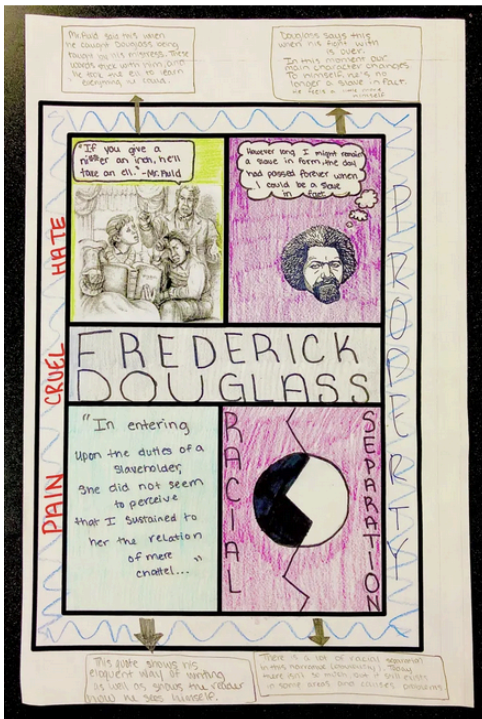 Mr. Auld said this when
he caught Douglass being
taught by his mistress. These
words stuck with him, and
he took the ell to learn
everything he could.
Douglass says this
when his fight with
is over.
In this moment our
main character changes.
To himself, he's no
longer a slave in fact.
he feels a
himself
"If you give a
ni**er an inch, he'll
take an ell." -Mr. Auld
However long I might remain
a slave in form, the day
had passed forever when
I could be a slave
in fact
HATE
CRUEL
PAIN
PROPERTY
FREDERICK
DOUGLASS
"In entering
Upon the duties of a
slaveholder,
she did not seem
to perceive
that I sustained to
her the relation
of mere
chattel... "
RACIAL
SEPARATION
This quote shows his
eloquent way of writing
as well as shows the reader
how he sees himself.
There is a lot of racial separation
in this narrative (obviously). Today
there isn't so much, but it still exists
in some areas and causes problems